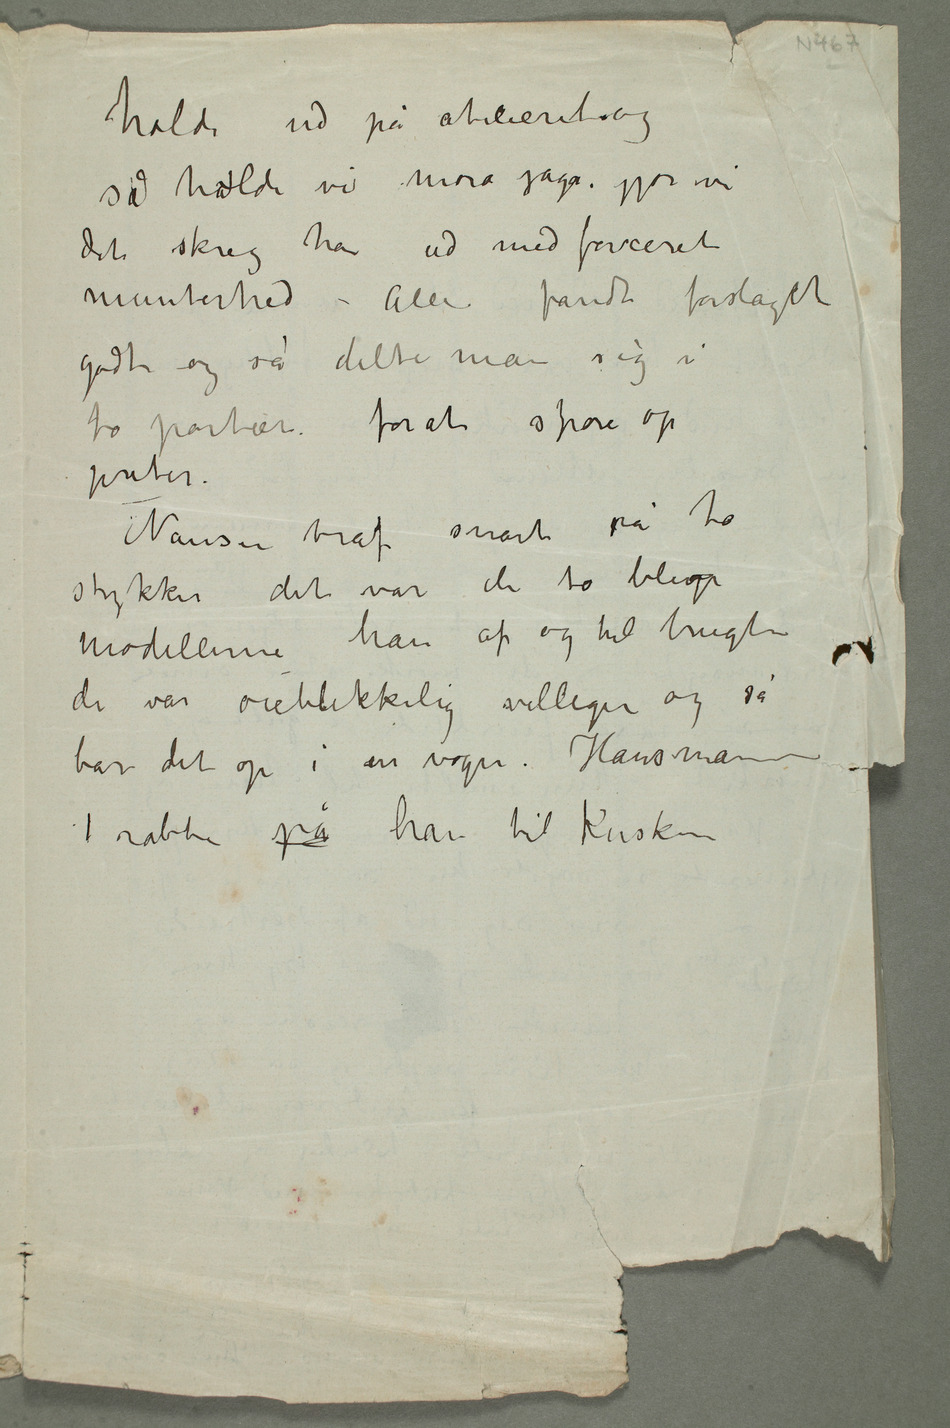 N467
holde ud på atelieret og
så holde vi mora jaga. gjør vi
det skreg han ud med forceret
munterhed – Alle fandt forslaget
godt og så delte man sig i
to partier. forat spore op
piker.
Nansen traf snart på to
stykker det var de to blege
modellerne han af og til brugte
de var øieblikkelig villige og så
bar det op i en vogn. Hausmann
1 rabbe på han til Kusken